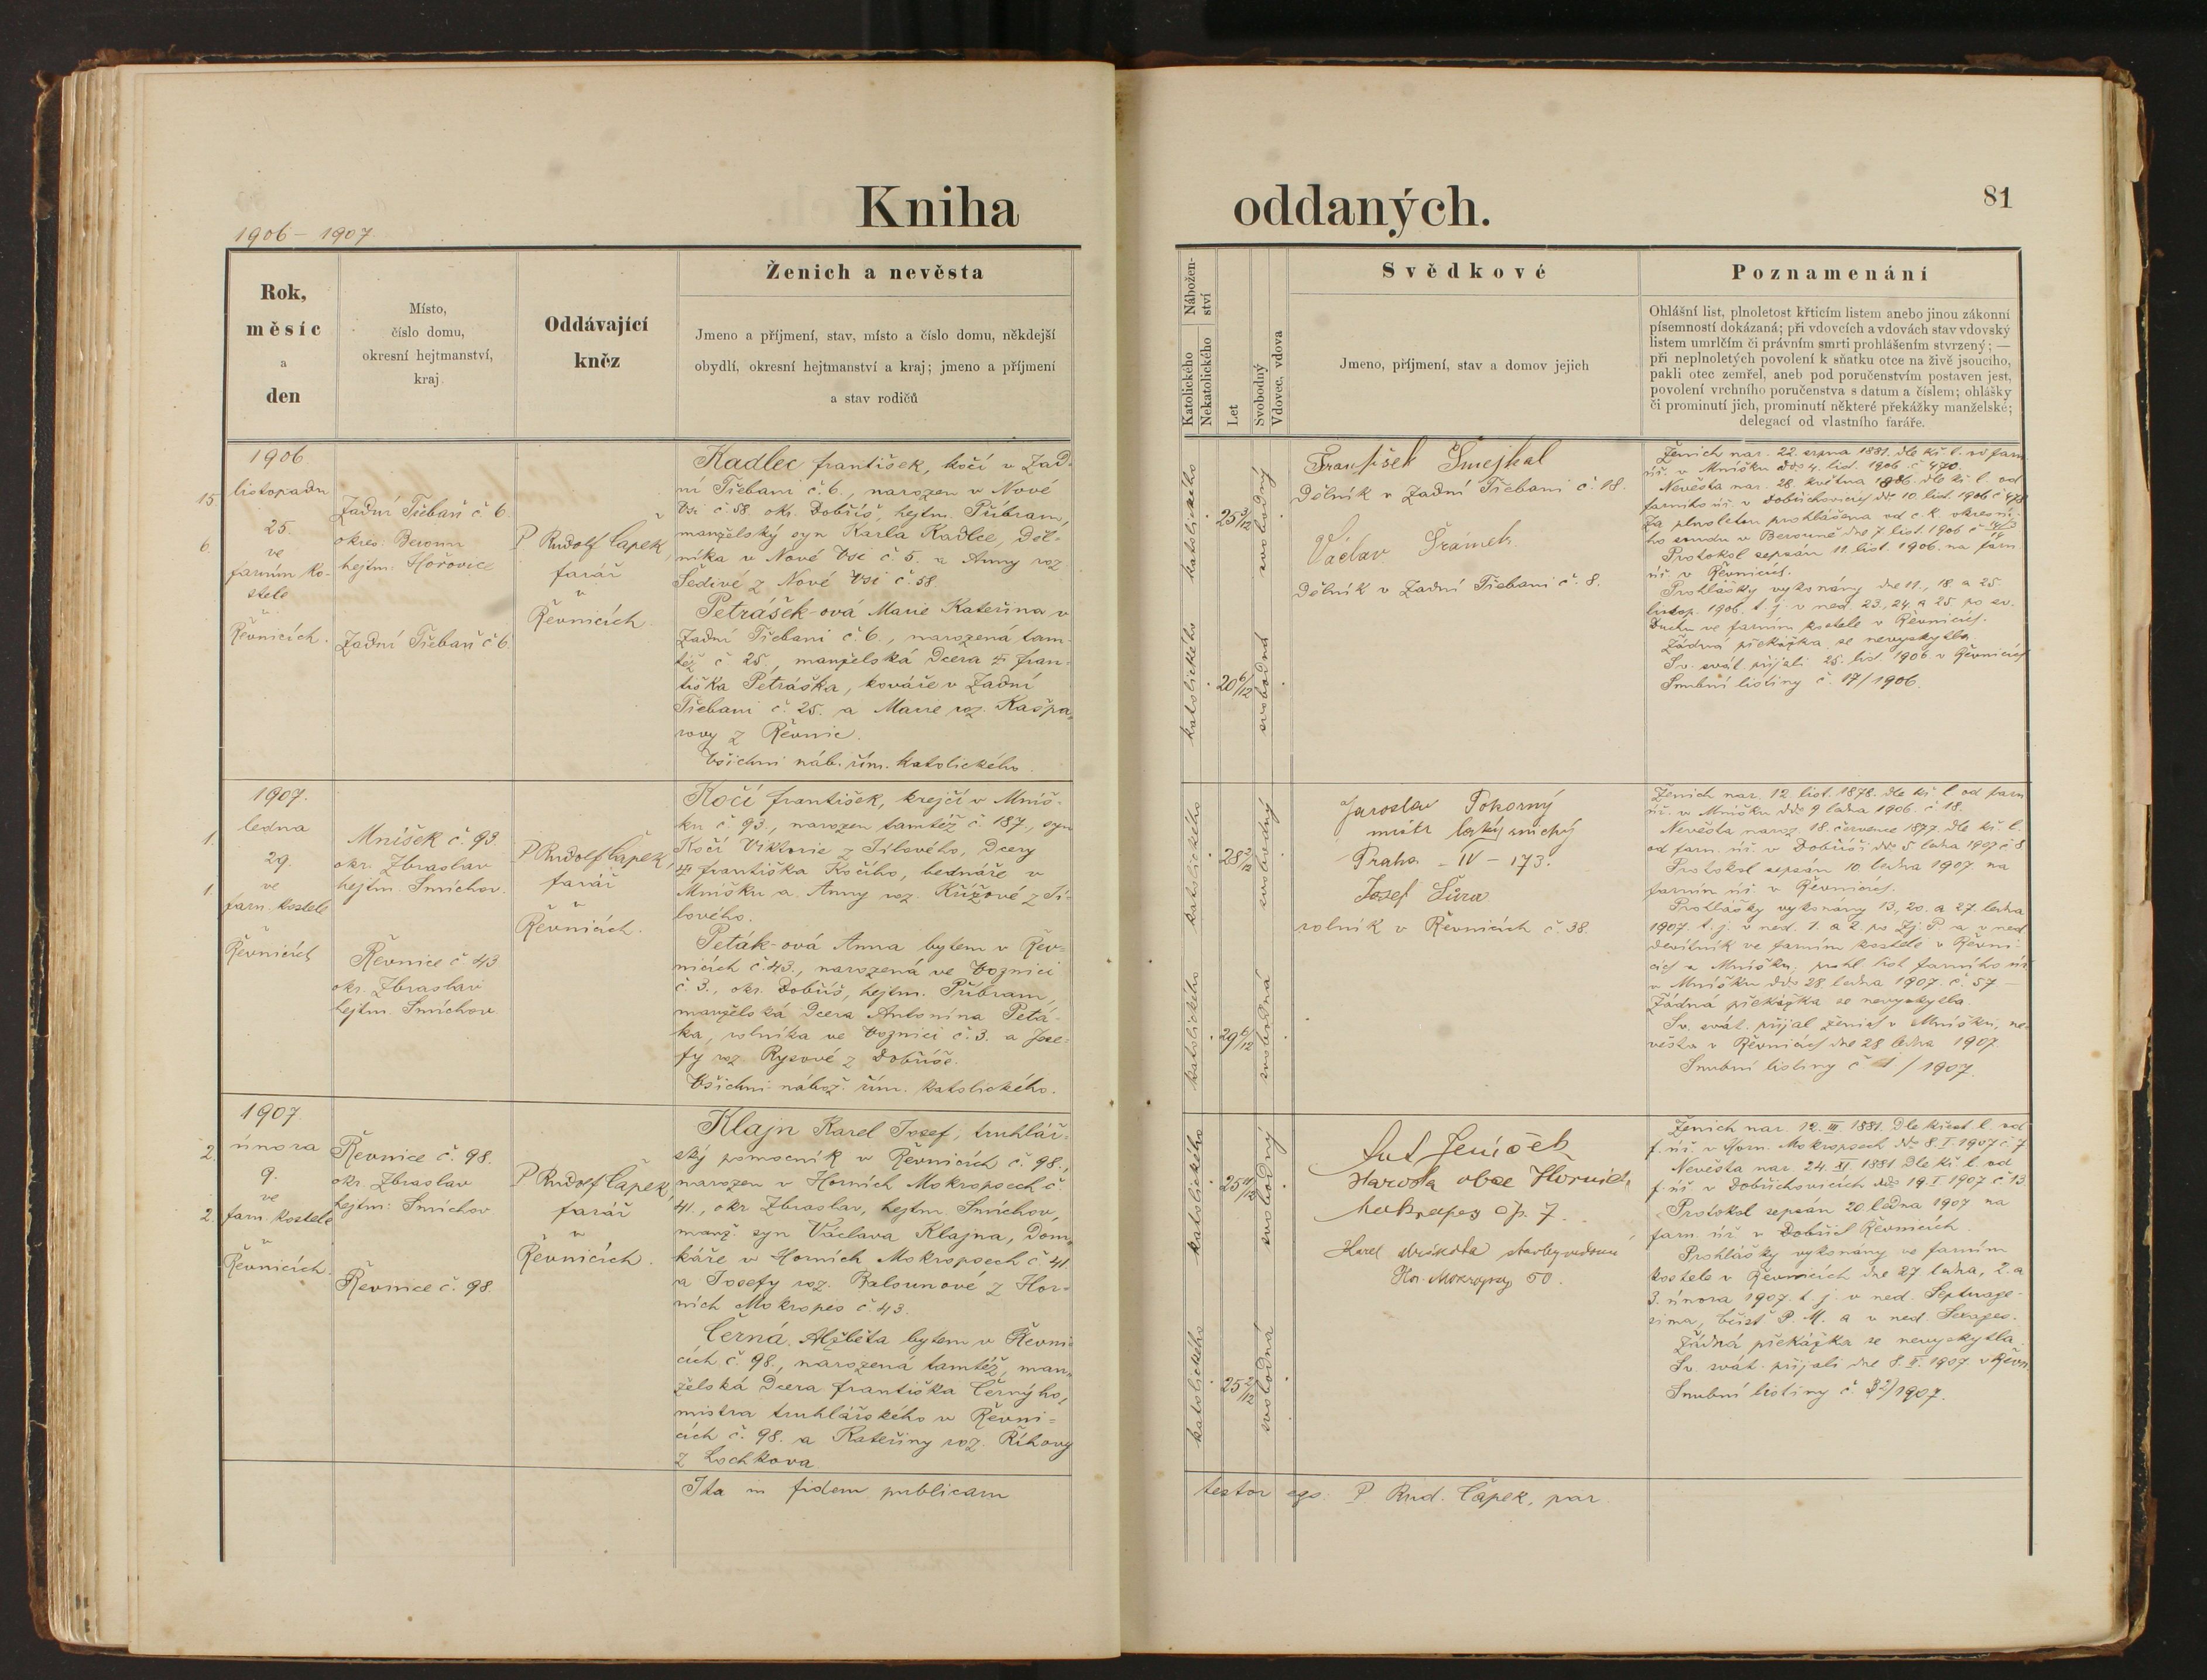 Kniha
oddaných.
81
1906 – 1907.
Rok,
měsíc
a
den
Místo,
číslo domu,
okresní hejtmanství,
kraj
Oddávající
kněz
Ženich a nevěsta
Jmeno a příjmení, stav, místo a číslo domu, někdejší
obydlí, okresní hejtmanství a kraj; jmeno a příjmení
a stav rodičů
Nábožen-
ství
Katolického
Nekatolického
Let
Svobodný
Vdovec, vdova
Svědkové
Jmeno, příjmení, stav a domov jejich
Poznamenání
Ohlášní list, plnoletost křticím listem anebo jinou zákonní
písemností dokázaná; při vdovcích a vdovách stav vdovský
listem umrlčím či právním smrti prohlášením stvrzený; —
při neplnoletých povolení k sňatku otce na živě jsoucího,
pakli otec zemřel, aneb pod poručenstvím postaven jest,
povolení vrchního poručenstva s datum a číslem; ohlášky
či prominutí jich, prominutí některé překážky manželské;
delegací od vlastního faráře.
1906.
listopadu
15.
25.
6.
ve
farním ko-
stele
v
Řevnicích.
Zadní Třebaň č 6.
okres. Beroun
hejtm: Hořovice
Zadní Třebaň č 6.
P Rudolf Čapek,
farář
v
Řevnicích.
Kadlec František, kočí v Zad-
ní Třebani č. 6., narozen v Nové
Vsi č 58. okr. Dobříš, hejtm. Příbram,
manželský syn Karla Kadlce, děl-
níka v Nové Vsi č 5. a Anny roz
Šedivé z Nové Vsi č 58.
Petrášek-ová Marie Kateřina v
Zadní Třebani č 6., narozená tam-
též č 25., manželská dcera † Fran-
tiška Petráška, kováře v Zadní
Třebani č. 25. a Marie roz. Kašpa-
rovy z Řevnic.
Všichni náb. řím. katolického.
katolického
25 3/12
svobodný
katolického
20 6/12
svobodná
František Smejkal
Dělník v Zadní Třebani č. 18.
Václav Šrámek
Dělník v Zadní Třebani č. 8.
Ženich nar. 22. srpna 1881. dle kř. l. od farn
úř. v Mníšku ddo 4. list. 1906. č 470.
Nevěsta nar. 28. května 1886. dle kř l. od
farního úř. v Dobřichovicích dto 10. list. 1906 č
Za plnoletou prohlášena od c. k. okresní-
ho soudu v Berouně dne 7. list. 1906 č
Protokol sepsán 11. list. 1906. na farn.
úř. v Řevnicích.
Prohlášky vykonány dne 11., 18. a 25.
listop. 1906. t. j. v ned. 23., 24. a 25. po sv.
Duchu ve farním kostele v Řevnicích.
Žádná překážka se nevyskytla.
Sv. svát. přijali 25. list. 1906 v Řevnicích
Snubní listiny č. 17/1906.
1907.
ledna
1.
29.
1.
ve
farn. kostele
v
Řevnicích
Mníšek č. 93.
okr. Zbraslav
hejtm. Smíchov.
Řevnice č. 43
okr. Zbraslav
hejtm. Smíchov
P Rudolf Čapek,
farář
v
Řevnicích.
Kočí František, krejčí v Mníš-
ku č. 93., narozen tamtéž č. 187., syn
Kočí Viktorie z Jílového, dcery
† Františka Kočího, bednáře v
Mníšku a Anny roz. Křížové z Jí-
lového.
Peták-ová Anna bytem v Řev-
nicích č 43., narozená ve Voznici
č. 3., okr. Dobříš, hejtm. Příbram,
manželská dcera Antonína Petá-
ka, rolníka ve Voznici č. 3. a Jose-
fy roz. Rysové z Dobříše.
Všichni nábož. řím. katolického.
katolického
28 2/12
svobodný
katolického
29 6/12
svobodná
Jaroslav Pokorný
mistr
Praha – IV – 173.
Josef Šůra
rolník v Řevnicích č. 38.
Ženich nar. 12. list. 1878. dle kř. l. od farn
úř. v Mníšku ddo 9 ledna 1906. č 18.
Nevěsta naroz. 18. července 1877. dle kř. l.
od farn. úř. v Dobříši ddo 5 ledna 1907 č 8
Protokol sepsán 10. ledna 1907 na
farním úř. v Řevnicích.
Prohlášky vykonány 13., 20. a 27. ledna
1907. t. j. v ned. 1. a 2. po Zj. P. a v ned
devítník ve farním kostele v Řevni-
cích a Mníšku; prohl. list farního úř
v Mníšku ddo 28 ledna 1907. č. 57 –
Žádná překážka se nevyskytla.
Sv. svát. přijal ženich v Mníšku, ne-
věsta v Řevnicích dne 28 ledna 1907.
Snubní listiny č 1/1907.
1907.
února
2.
9.
2.
ve
farn. kostele
v
Řevnicích.
Řevnice č. 98.
okr. Zbraslav
hejtm: Smíchov
Řevnice č. 98.
P Rudolf Čapek,
farář
v
Řevnicích.
Klajn Karel Josef, truhlář-
ský pomocník v Řevnicích č. 98.,
narozen v Horních Mokropsech č.
41., okr. Zbraslav, hejtm. Smíchov,
manž. syn Václava Klajna, Dom-
káře v Horních Mokropsech č. 41.
a Josefy roz. Balounové z Hor-
ních Mokropes č. 43.
Černá Alžběta bytem v Řevni-
cích č. 98., narozená tamtéž, man-
želská dcera Františka Černýho,
mistra truhlářského v Řevni-
cích č. 98. a Kateřiny roz. Říhovy
z Lochkova.
katolického
25
svobodný
katolického
25 2/12
svobodná
Ant Jeníček
starosta obce Horních
Mokropes čp. 7.
Karel
Hor. Mokropsy 50.
Ženich nar. 12. III. 1881. dle křest l. od
f. úř. v Horn. Mokropsech ddo 8. I. 1907 č 7
Nevěsta nar. 24. XI 1881 dle kř. l. od
f. úř. v Dobřichovicích ddo 19. I 1907 č 13
Protokol sepsán 20 ledna 1907 na
farn. úř. v Dobřich Řevnicích
Prohlášky vykonány ve farním
kostele v Řevnicích dne 27 ledna, 2. a
3. února 1907. t. j. v ned. Septuage-
sima, čišt P. M. a v ned. Sexages.
Žádná překážka se nevyskytla.
Sv. svát. přijali dne 8. II. 1907 v Řevn.
Snubní listiny č. 2/1907.
Ita in fidem publicam
testor ego P Rud. Čapek, par.